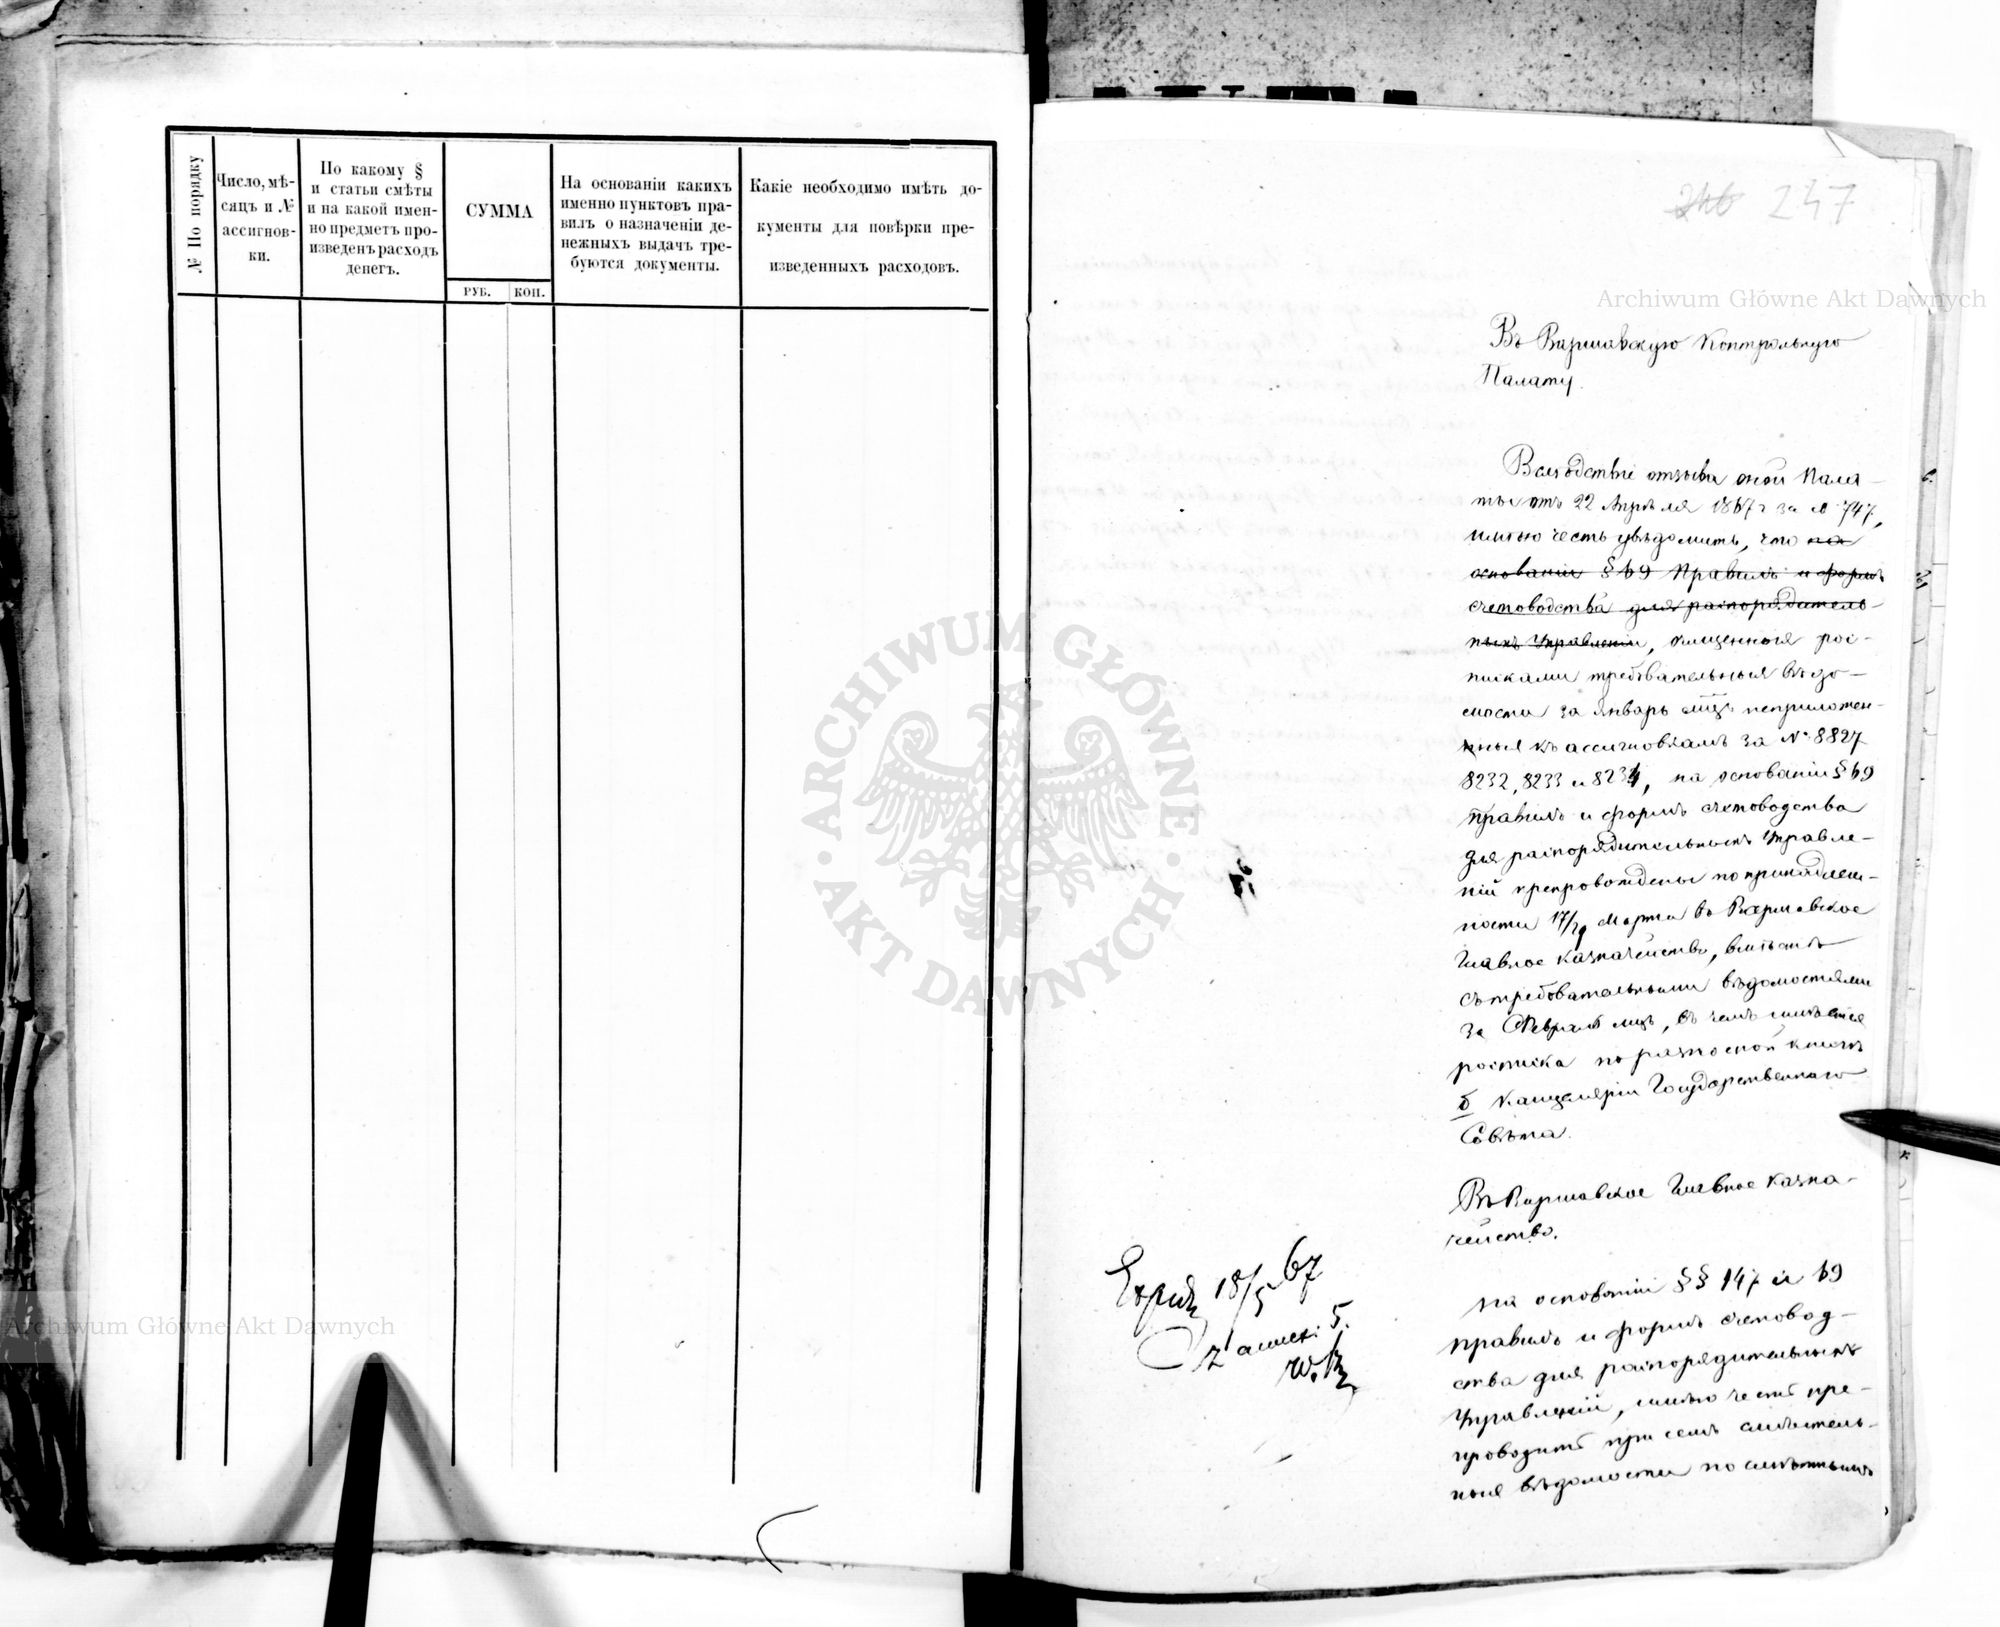 № По порядку
Число, мѣ-
сяцъ и №
ассигнов-
ки.
По какому §
и статьи смѣты
и на какой имен-
но предметъ про-
изведенъ расходъ
денегъ.
СУММА
РУБ.
КОП.
На основаніи какихъ
именно пунктовъ пра-
вилъ о назначеніи де-
нежныхъ выдачъ тре-
буются документы.
Какіе необходимо имѣть до-
кументы для повѣрки пре-
изведенныхъ расходовъ.
246 247
Въ Варшавскую Контрольную
Палату.
Вслѣдствіе отзыва оной Пала-
ты отъ 22 Апрѣля 1867 г за № 747,
имѣю честь увѣдомить, что на
основаніи § 69 Правилъ и формъ
счетоводства для распорядитель-
ныхъ Управленій, рос-
писками требовательныя вѣдо-
мости за Январь мцъ неприложен-
ныя къ ассигновкамъ за № 8827
8232, 8233 и 8234, на основаніи § 69
правилъ и формъ счетоводства
для распорядительныхъ Управле-
ній препровождены по принадлеж-
ности 17/29 Марта въ Варшавское
Главное Казначейство, вмѣстѣ
съ требовательными вѣдомостями
за Февраль мцъ, въ чемъ имѣется
росписка по разносной книгѣ
Канцеляріи Государственнаго
Совѣта.
Въ Варшавское Главное Казна-
чейство.
На основаніи §§ 147 и 69
правилъ и формъ счетовод-
ства для распорядительныхъ
Управленій, имѣю честь пре-
проводить при семъ
ныя вѣдомости по
18/5 67
5.
Archiwum Główne Akt Dawnych
Archiwum Główne Akt Dawnych
ARCHIWUM GŁÓWNE
AKT DAWNYCH